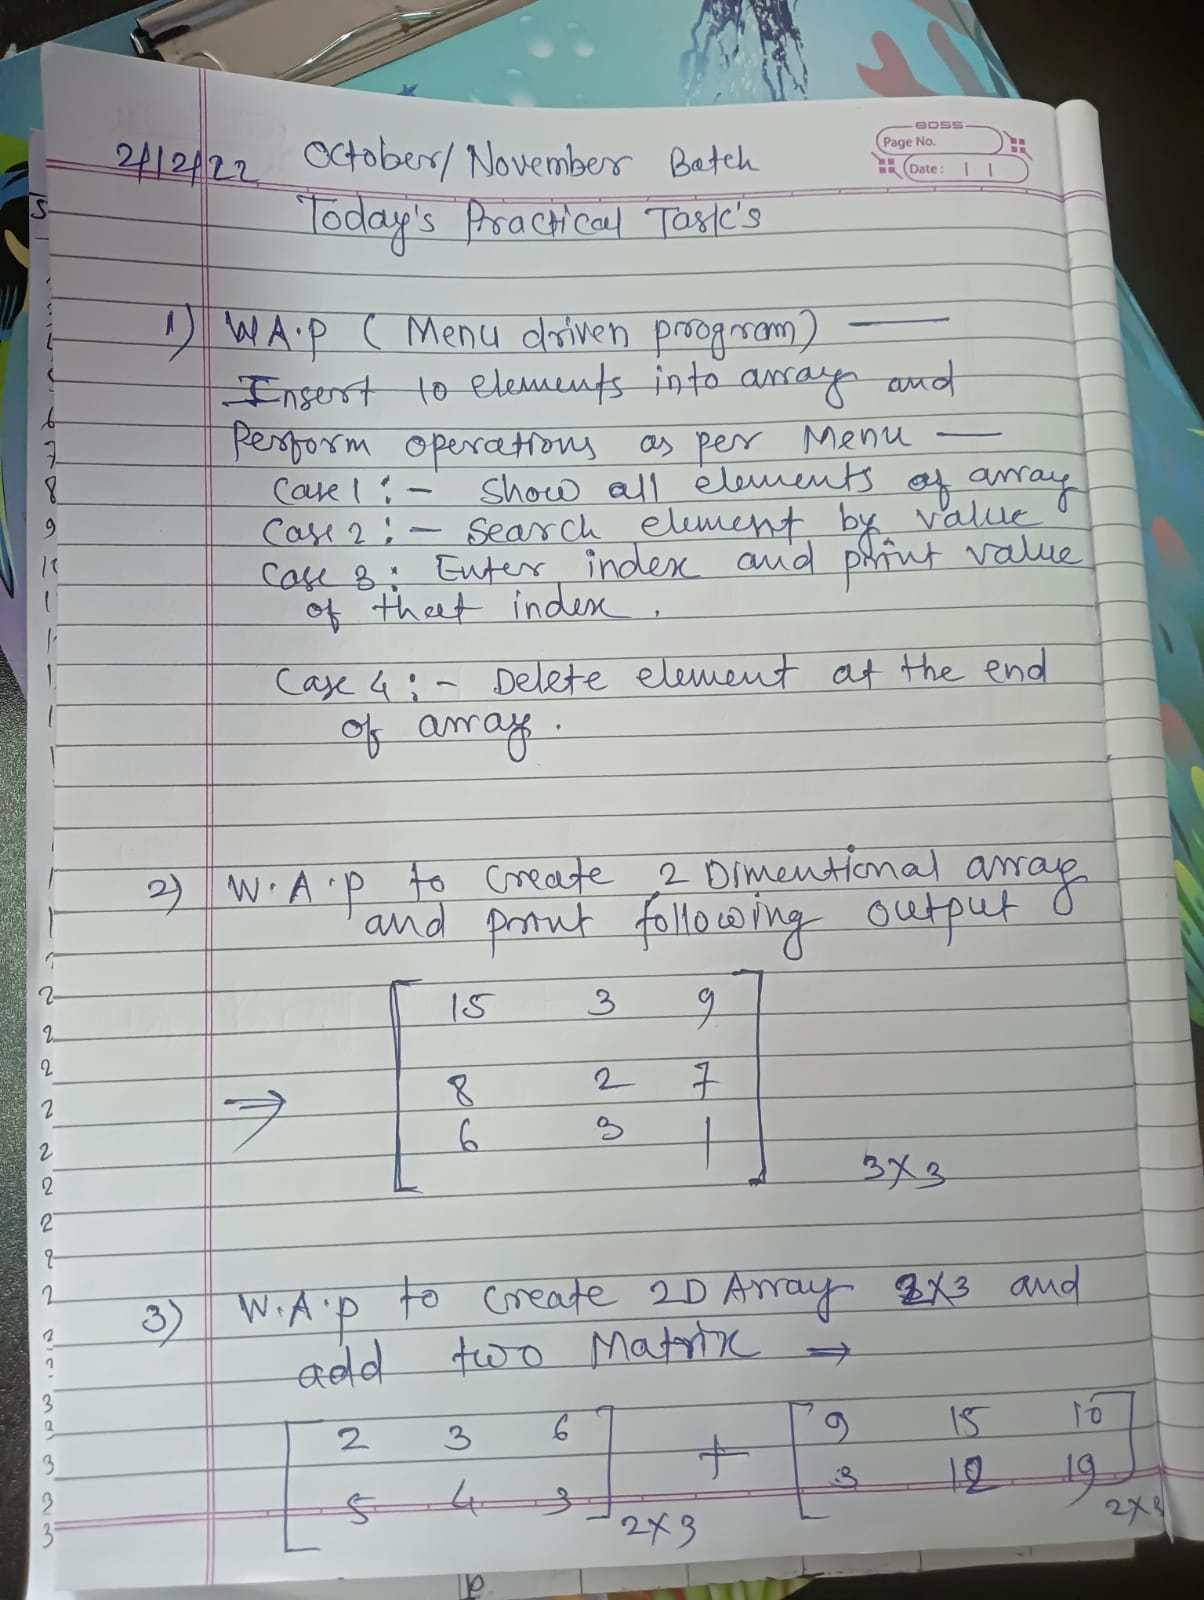 BOSS
Page No.
Date:
2/12/22 October/November Batch
Today's Practical Task's
1) W.A.P (Menu driven program) —
Insert 10 elements into array and
Perform operations as per Menu —
Case 1 :- Show all elements of array
Case 2 :- Search element by value
Case 3 : Enter index and print value
of that index.
Case 4 :- Delete element at the end
of array.
2) W.A.P to create 2 Dimentional array
and print following output
15 3 9
⇒ 8 2 7
6 3 1
3×3
3) W.A.P to create 2D Array 2×3 and
add two Matrix →
2 3 6 + 9 15 10
5 4 3 3 12 19
2×3 2×3